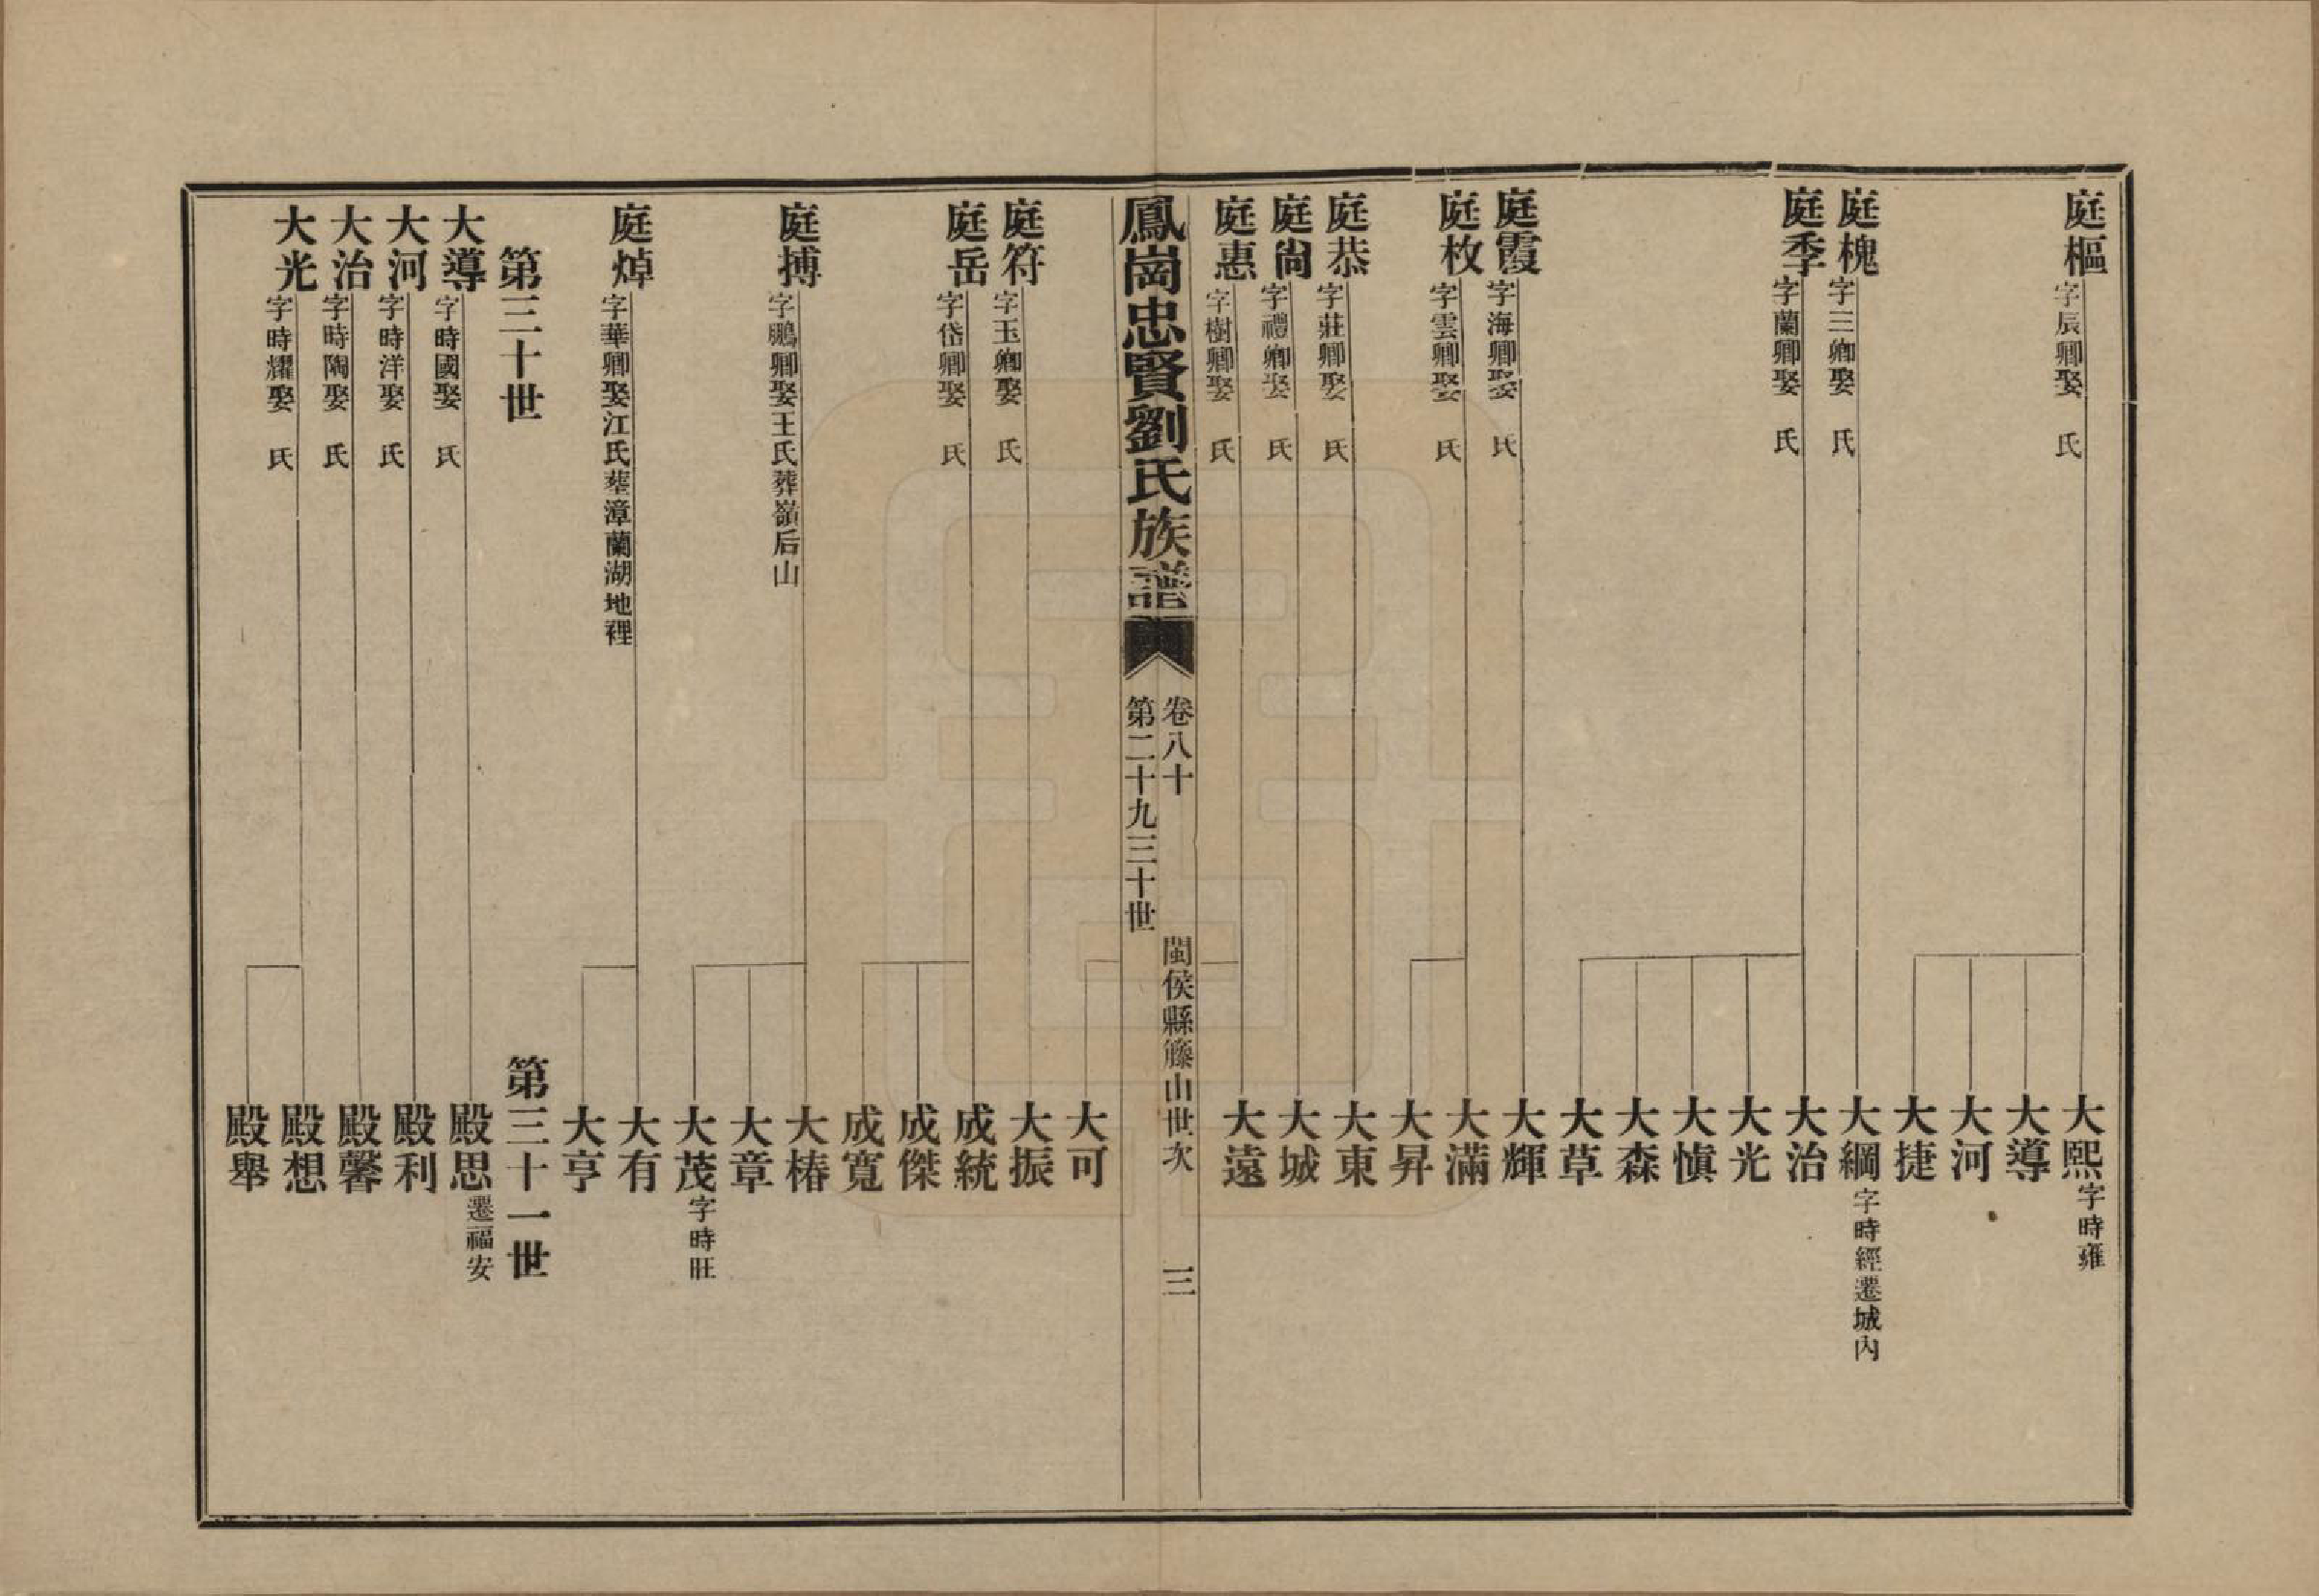 庭樞字辰卿娶　氏
大熙字時雍
大導
大河
大捷
庭槐字三卿娶　氏
大綱字時經遷城內
庭季字蘭卿娶　氏
大治
大光
大慎
大森
大草
庭霞字海卿娶　氏
大輝
庭枚字雲卿娶　氏
大滿
大昇
庭恭字莊卿娶　氏
大東
庭尙字禮卿娶　氏
大城
庭惠字樹卿娶　氏
大遠
鳳崗忠賢劉氏族譜
卷八十　閩侯縣籐山世次　三
第二十九三十世
大可
庭符字玉卿娶　氏
大振
庭岳字岱卿娶　氏
成統
成傑
成寬
庭搏字鵬卿娶王氏葬嶺后山
大椿
大章
大茂字時旺
庭焯字華卿娶江氏葬漳蘭湖地裡
大有
大亨
第三十世　第三十一世
大導字時國娶　氏
殿思遷福安
大河字時洋娶　氏
殿利
大治字時陶娶　氏
殿馨
大光字時耀娶　氏
殿想
殿舉